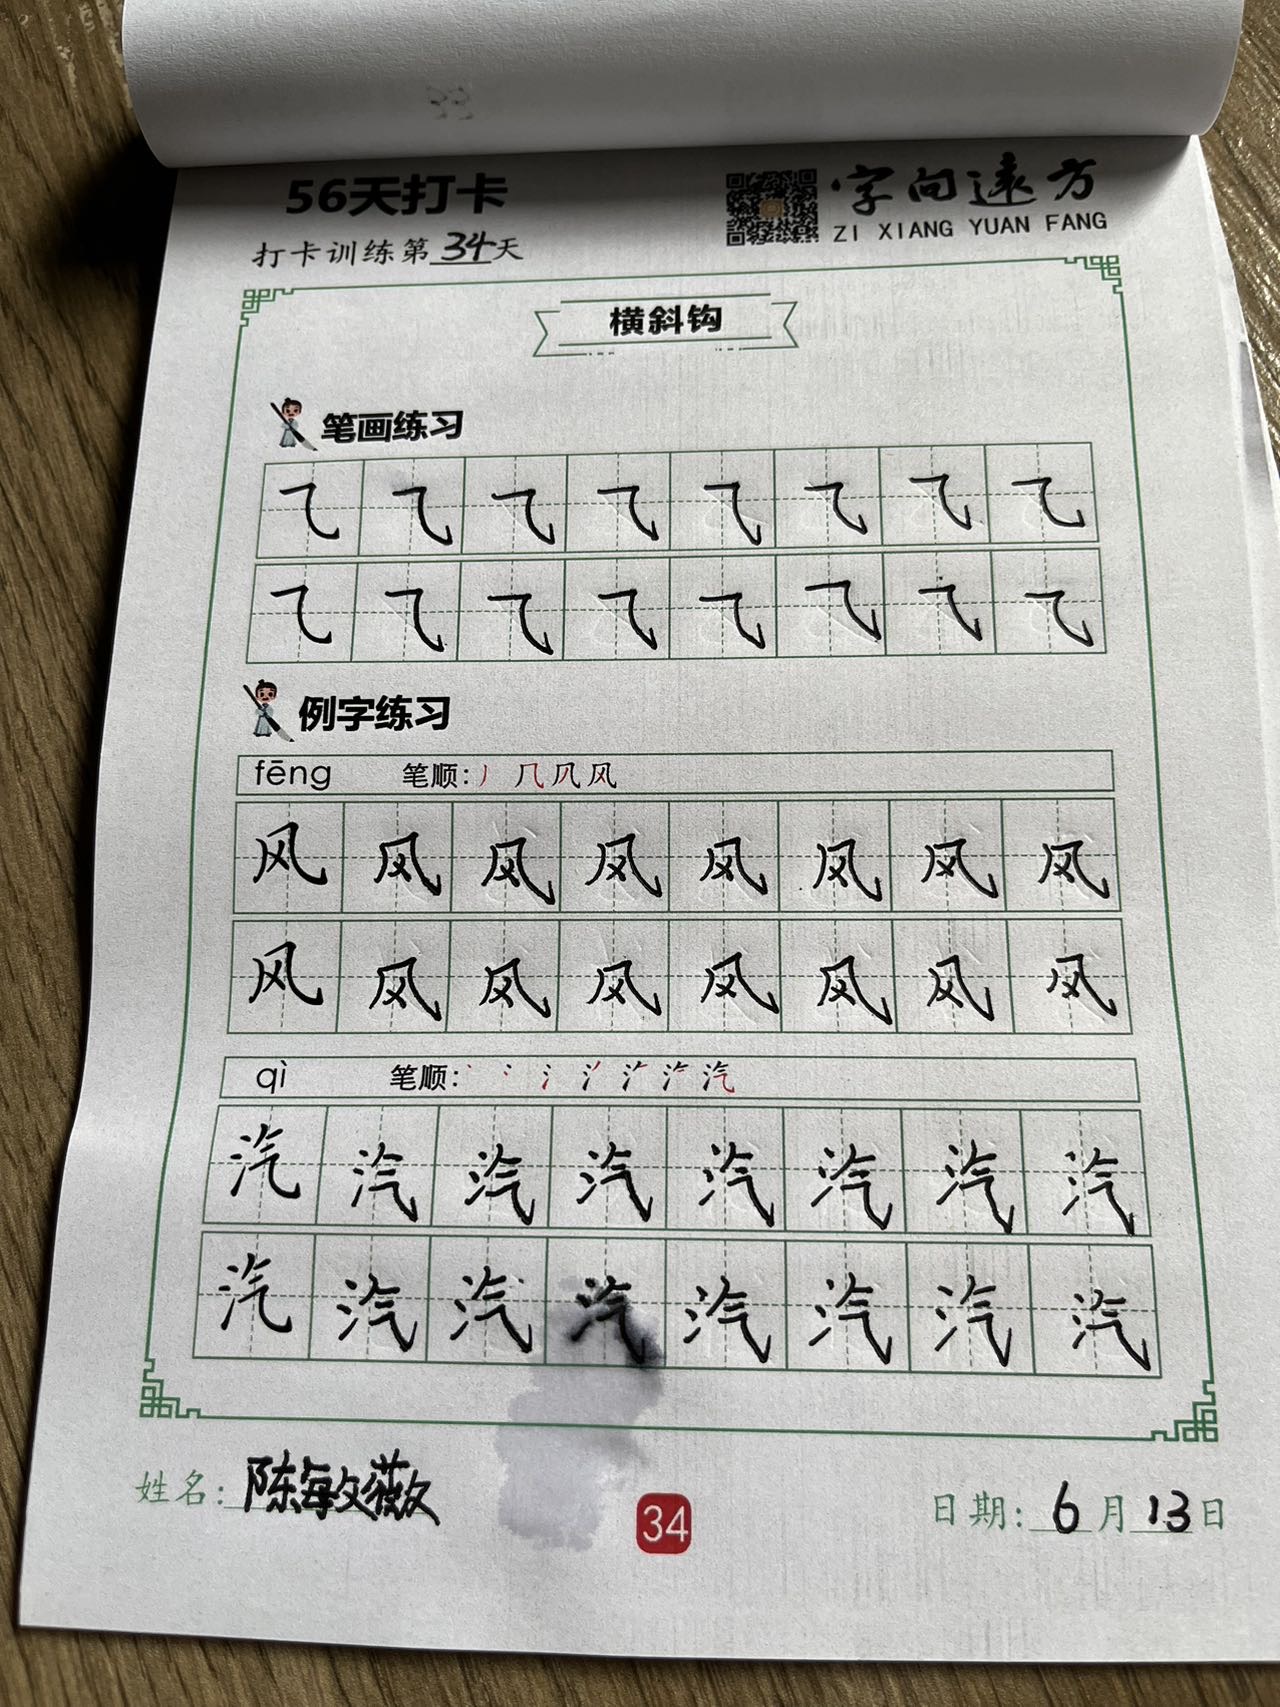 56天打卡
字向远方
ZI XIANG YUAN FANG
打卡训练第34天
横斜钩
笔画练习
⺄ ⺄ ⺄ ⺄ ⺄ ⺄ ⺄ ⺄
⺄ ⺄ ⺄ ⺄ ⺄ ⺄ ⺄ ⺄
例字练习
fēng 笔顺: 丿 几 凤 风
风 风 风 风 风 风 风 风
风 风 风 风 风 风 风 风
qì 笔顺: 汽
汽 汽 汽 汽 汽 汽 汽 汽
汽 汽 汽 汽 汽 汽 汽 汽
姓名: 陈敏薇
34
日期: 6月13日